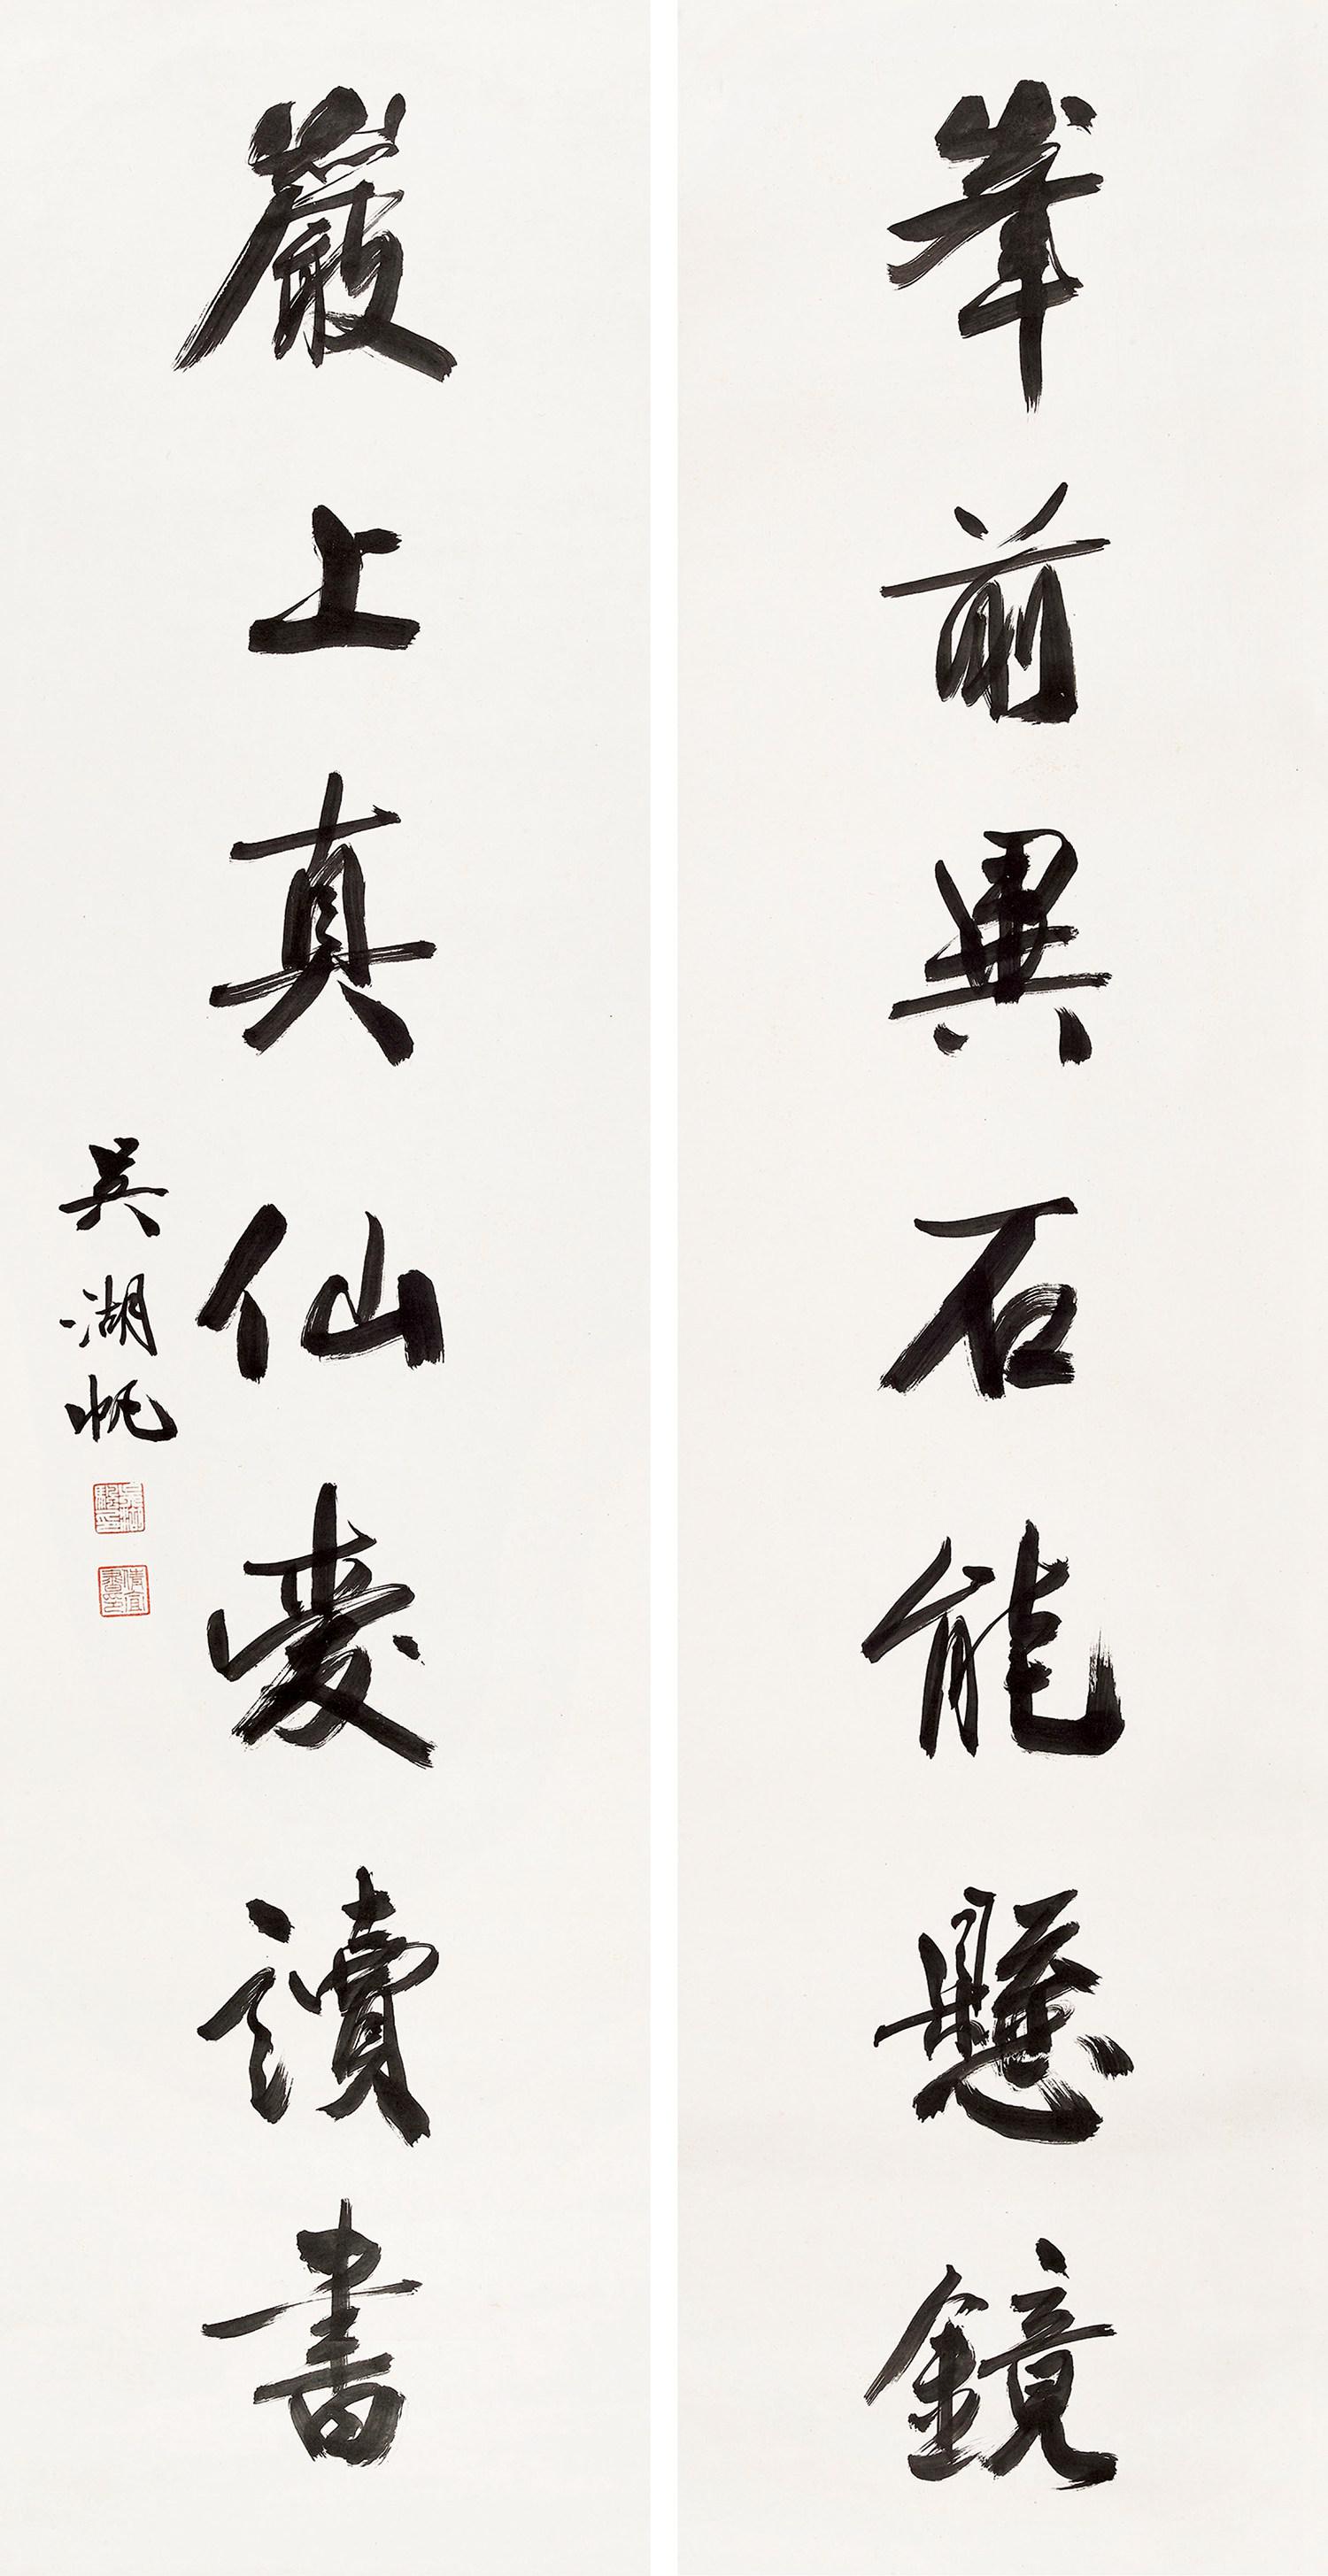 峯前異石能懸鏡
巖上真仙愛讀書
吳湖帆